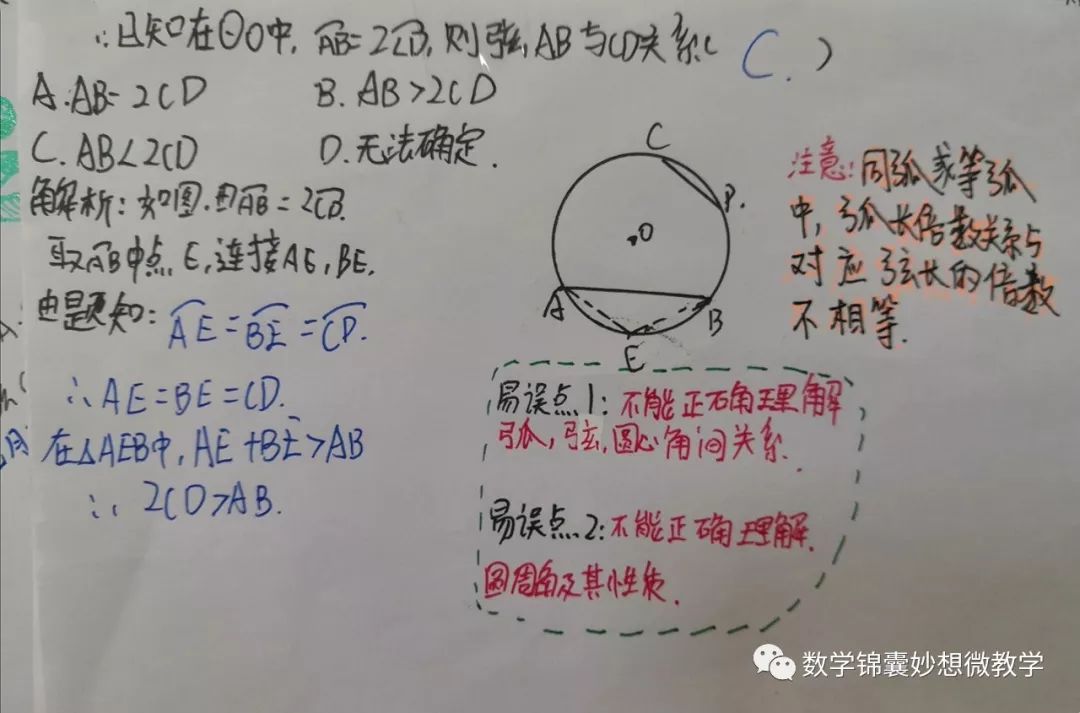 ∴已知在⊙O中, A͡B=2C͡D, 则弦AB与CD关系( C. )
A. AB=2CD B. AB>2CD
C. AB<2CD D. 无法确定.
解析: 如图. 由A͡B=2C͡D.
取A͡B中点E, 连接AE, BE.
由题知: A͡E=B͡E=C͡D.
∴AE=BE=CD.
在△AEB中, AE+BE>AB
∴ 2CD>AB.
C
D.
O
A
B
E
注意: 同弧或等弧
中, 弧长倍数关系与
对应弦长的倍数
不相等.
易误点1: 不能正确理解
弧, 弦, 圆心角间关系.
易误点2: 不能正确理解.
圆周角及其性质.
数学锦囊妙想微教学